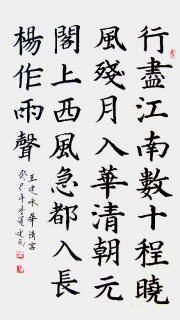 行盡江南數十程曉
風殘月入華清朝元
閣上西風急都入長
楊作雨聲
王建詠華清宮
癸巳年孟夏建武